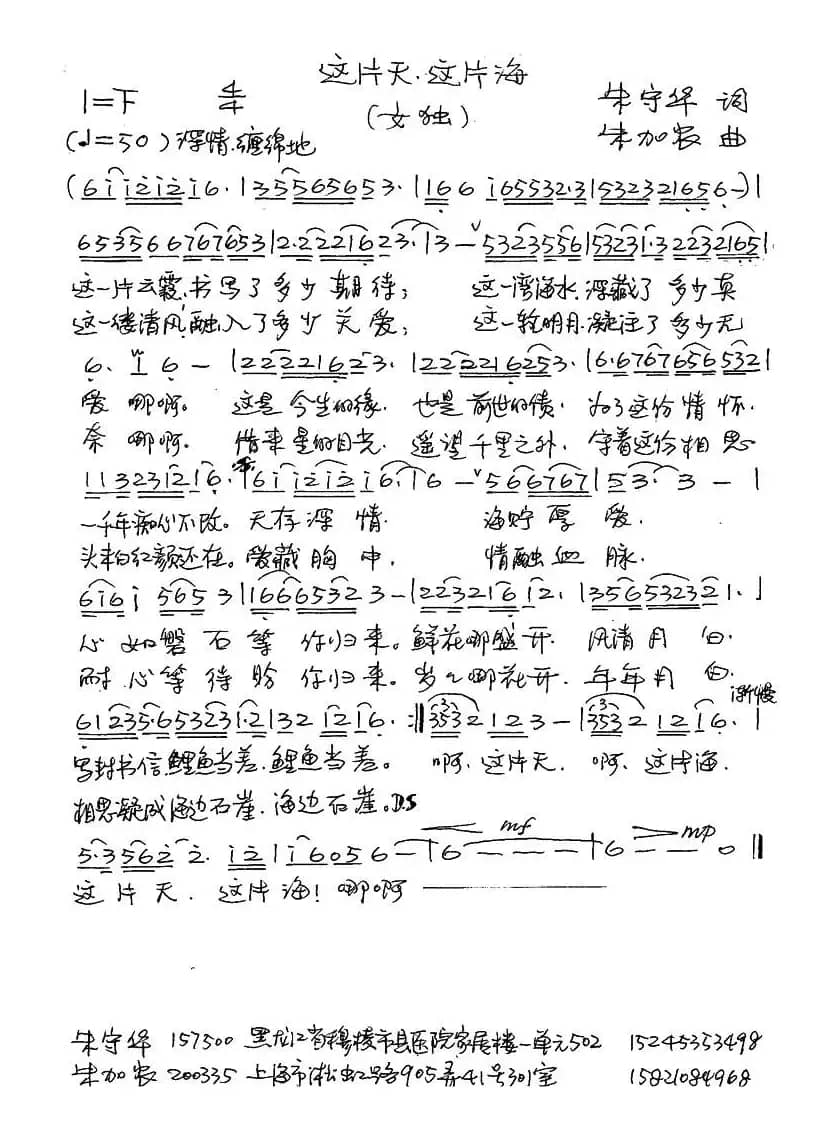 这片天·这片海
1=F 4/4
(女独)
朱守华 词
(♩=50)深情.缠绵地
朱加农 曲
(6 i i 2 i 2 i 6· | 3 5 5 5 6 5 6 5 3· | 1 6 6 i 6 5 5 3 2·3 | 5 3 2 3 2 1 6 5 6 -) |
6 5 3 5 6 6 7 6 7 6 5 3 | 2·2 2 2 1 6 2 3· | 3 - 5 3 2 3 5 5 6 | 5 3 2 3 1·3 2 2 3 2 1 6 5 |
这一片云霞.书写了多少期待； 这一湾海水.深藏了多少真
这一缕清风.融入了多少关爱； 这一轮明月.凝注了多少无
6· 1 6 - | 2 2 2 2 2 1 6 2 3· | 2 2 2 2 1 6 2 5 3· | 6·6 7 6 7 6 5 6 5 3 2 |
爱哪啊。 这是今生的缘. 也是前世的债. 为了这份情怀.
奈哪啊。 借来星的目光. 遥望千里之外. 守着这份相思
1 1 3 2 3 1 2 | 6· | 6 i i 2 i 2 i 6· | 6 - 5 6 6 7 6 7 | 5 3· 3 - |
一千年痴心不改。天存深情. 海贮厚爱.
头未白红颜还在。爱藏胸中, 情融血脉.
6 i 6 i 5 6 5 3 | 1 6 6 6 5 3 2 3 - | 2 2 3 2 1 6 1 2. | 3 5 6 5 3 2 3 2 1. |
心如磐石等你归来。鲜花哪盛开. 风清月白.
耐心等待盼你归来。岁岁哪花开. 年年月白.
渐慢
6 1 2 3 5·6 5 3 2 3 1·2 | 3 2 1 2 1 6· :‖ 3 5 3 2 1 2 3 - | 3 5 3 2 1 2 1 6· |
写封书信.鲤鱼当差.鲤鱼当差。 啊.这片天. 啊、这片海.
相思凝成海边石崖.海边石崖。D.S
mf mp
5·3 5 6 2 2· i 2 | i 6 0 5 6 - | 6 - - - | 6 - - 0 ‖
这片天. 这片海！哪啊
朱守华 157500 黑龙江省穆棱市县医院家属楼一单元502 15245353498
朱加农 200335 上海市淞虹路905弄41号301室 15821084968